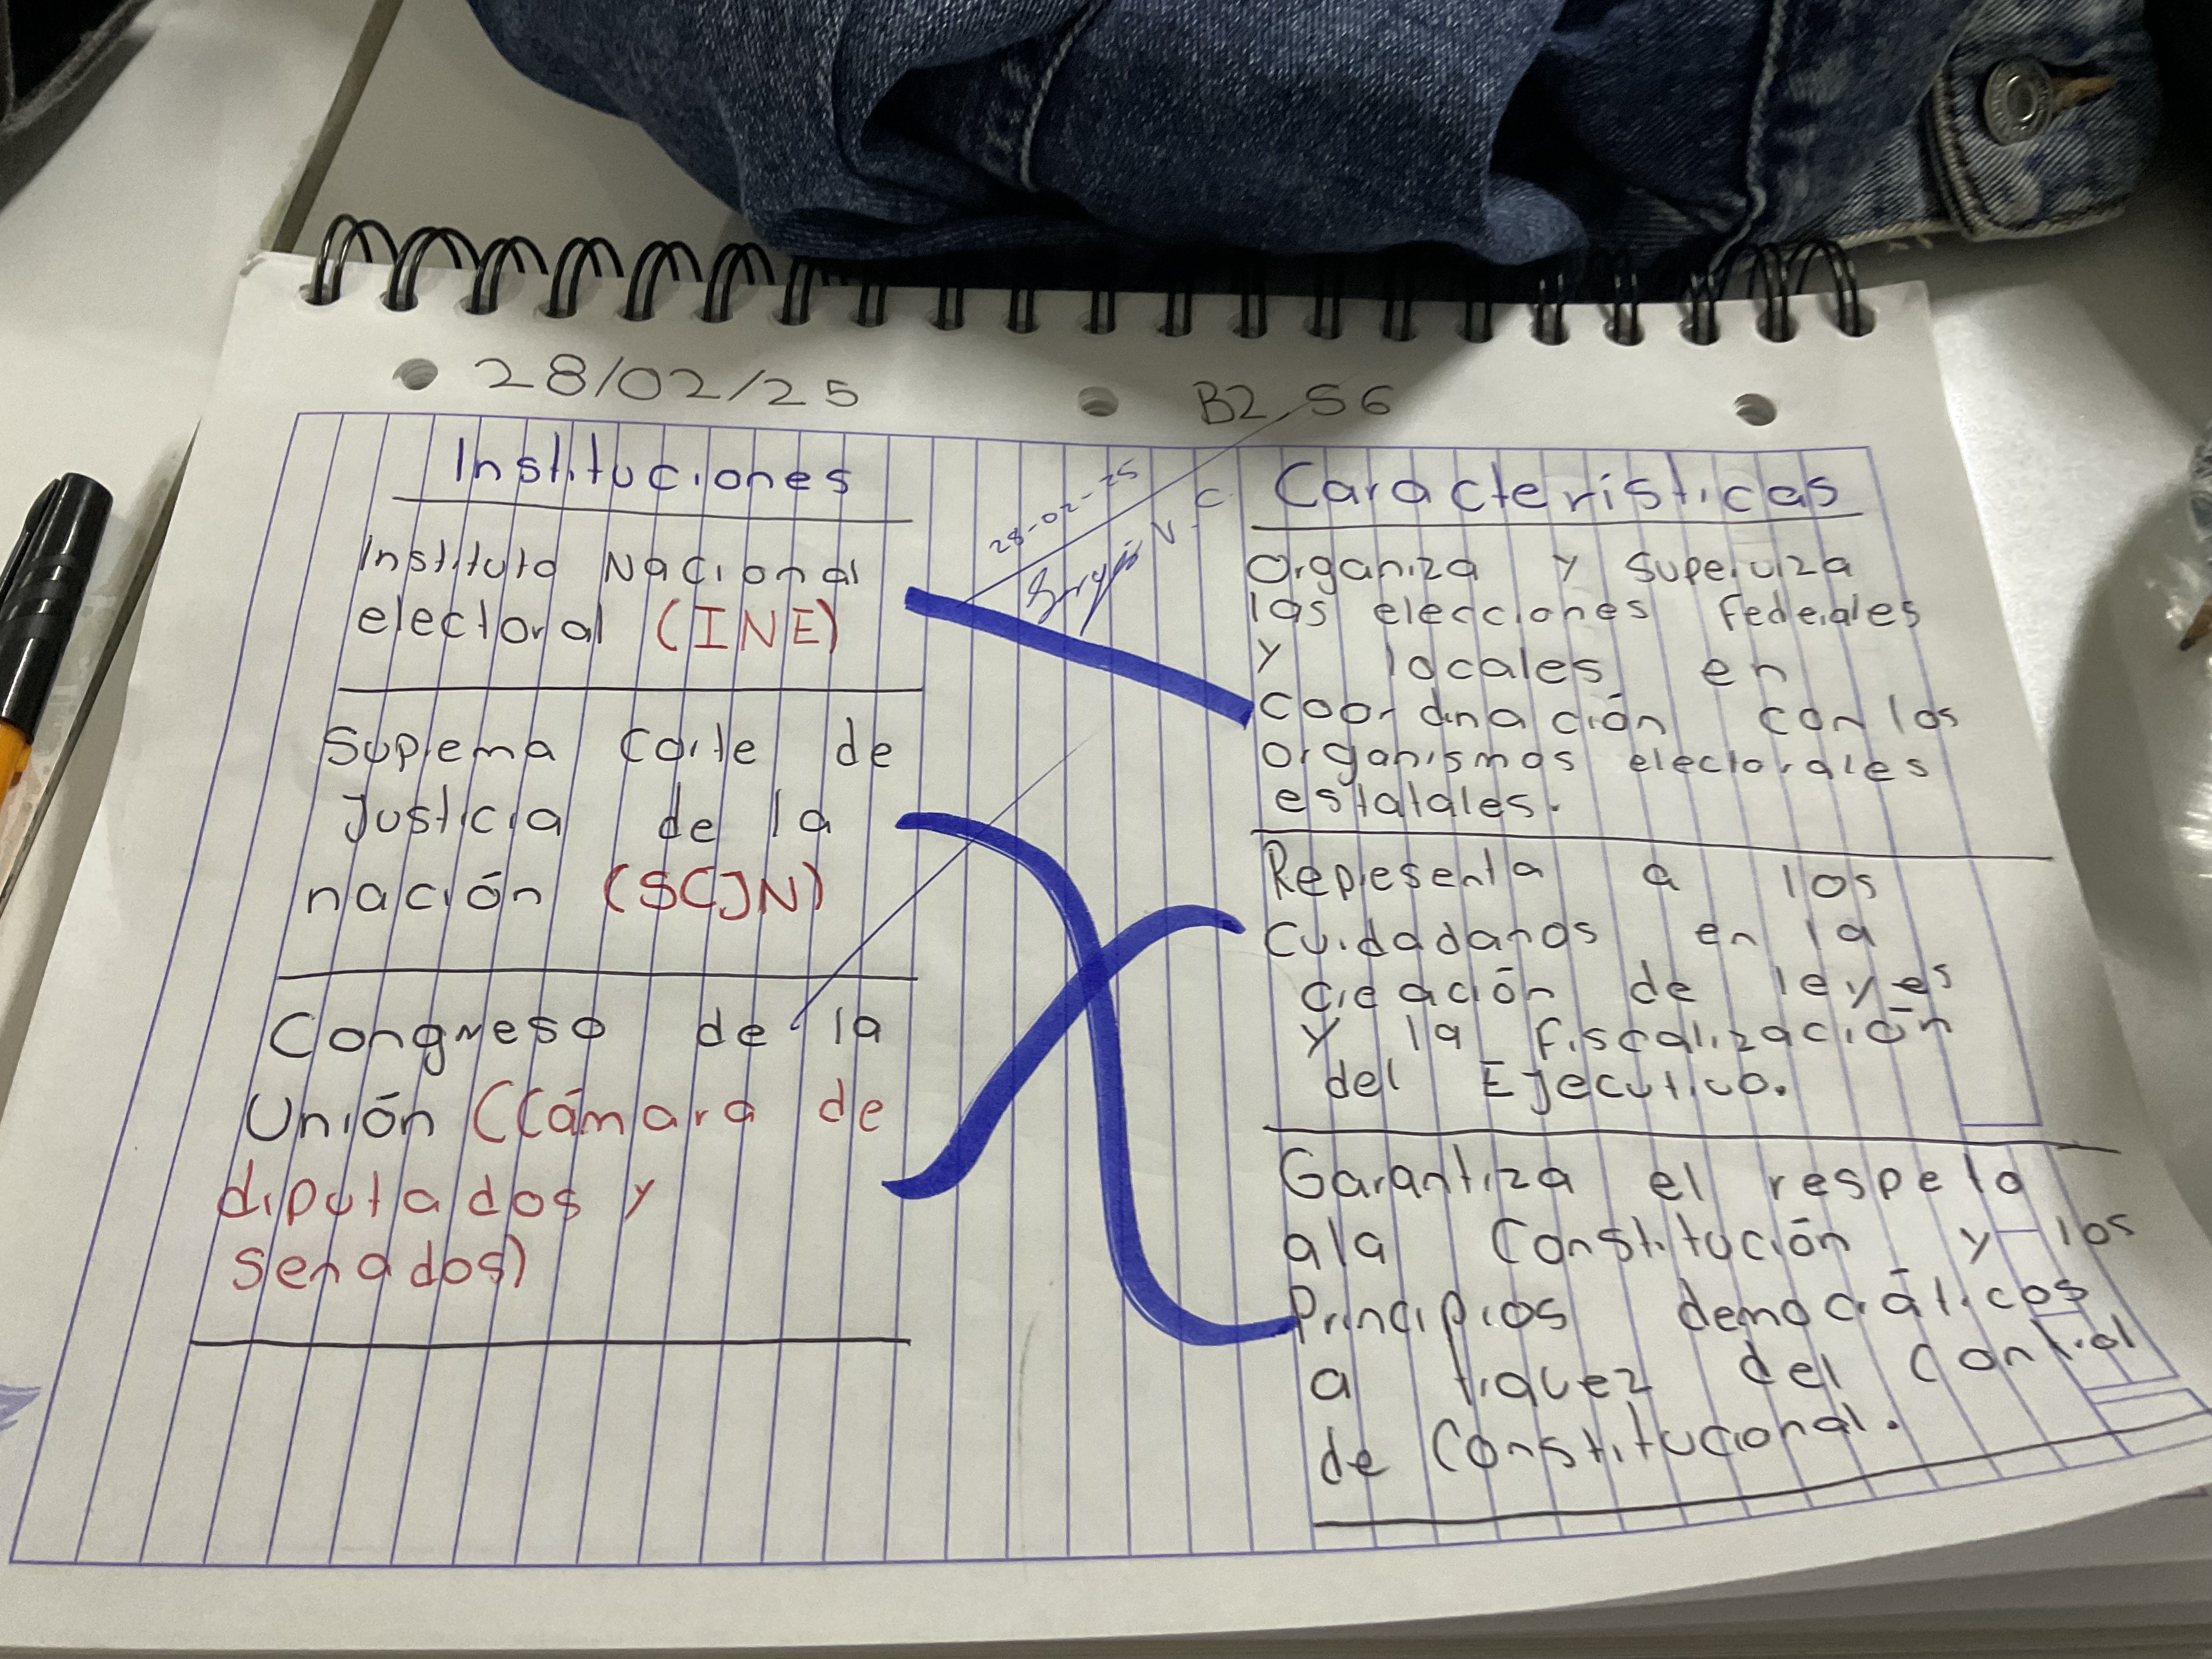 28/02/25
B2 S6
Instituciones
Instituto Nacional
electoral (INE)
Suprema Corte de
Justicia de la
nación (SCJN)
Congreso de la
Unión (Cámara de
diputados y
senados)
28-02-25
V.C.
Características
Organiza y Superviza
las elecciones Federales
y locales en
coordinación con los
organismos electorales
estatales.
Representa a los
Cuidadanos en la
creación de leyes
y la fiscalización
del Ejecutivo.
Garantiza el respeto
ala Constitución y los
Principios democráticos
a travez del Control
de Constitucional.